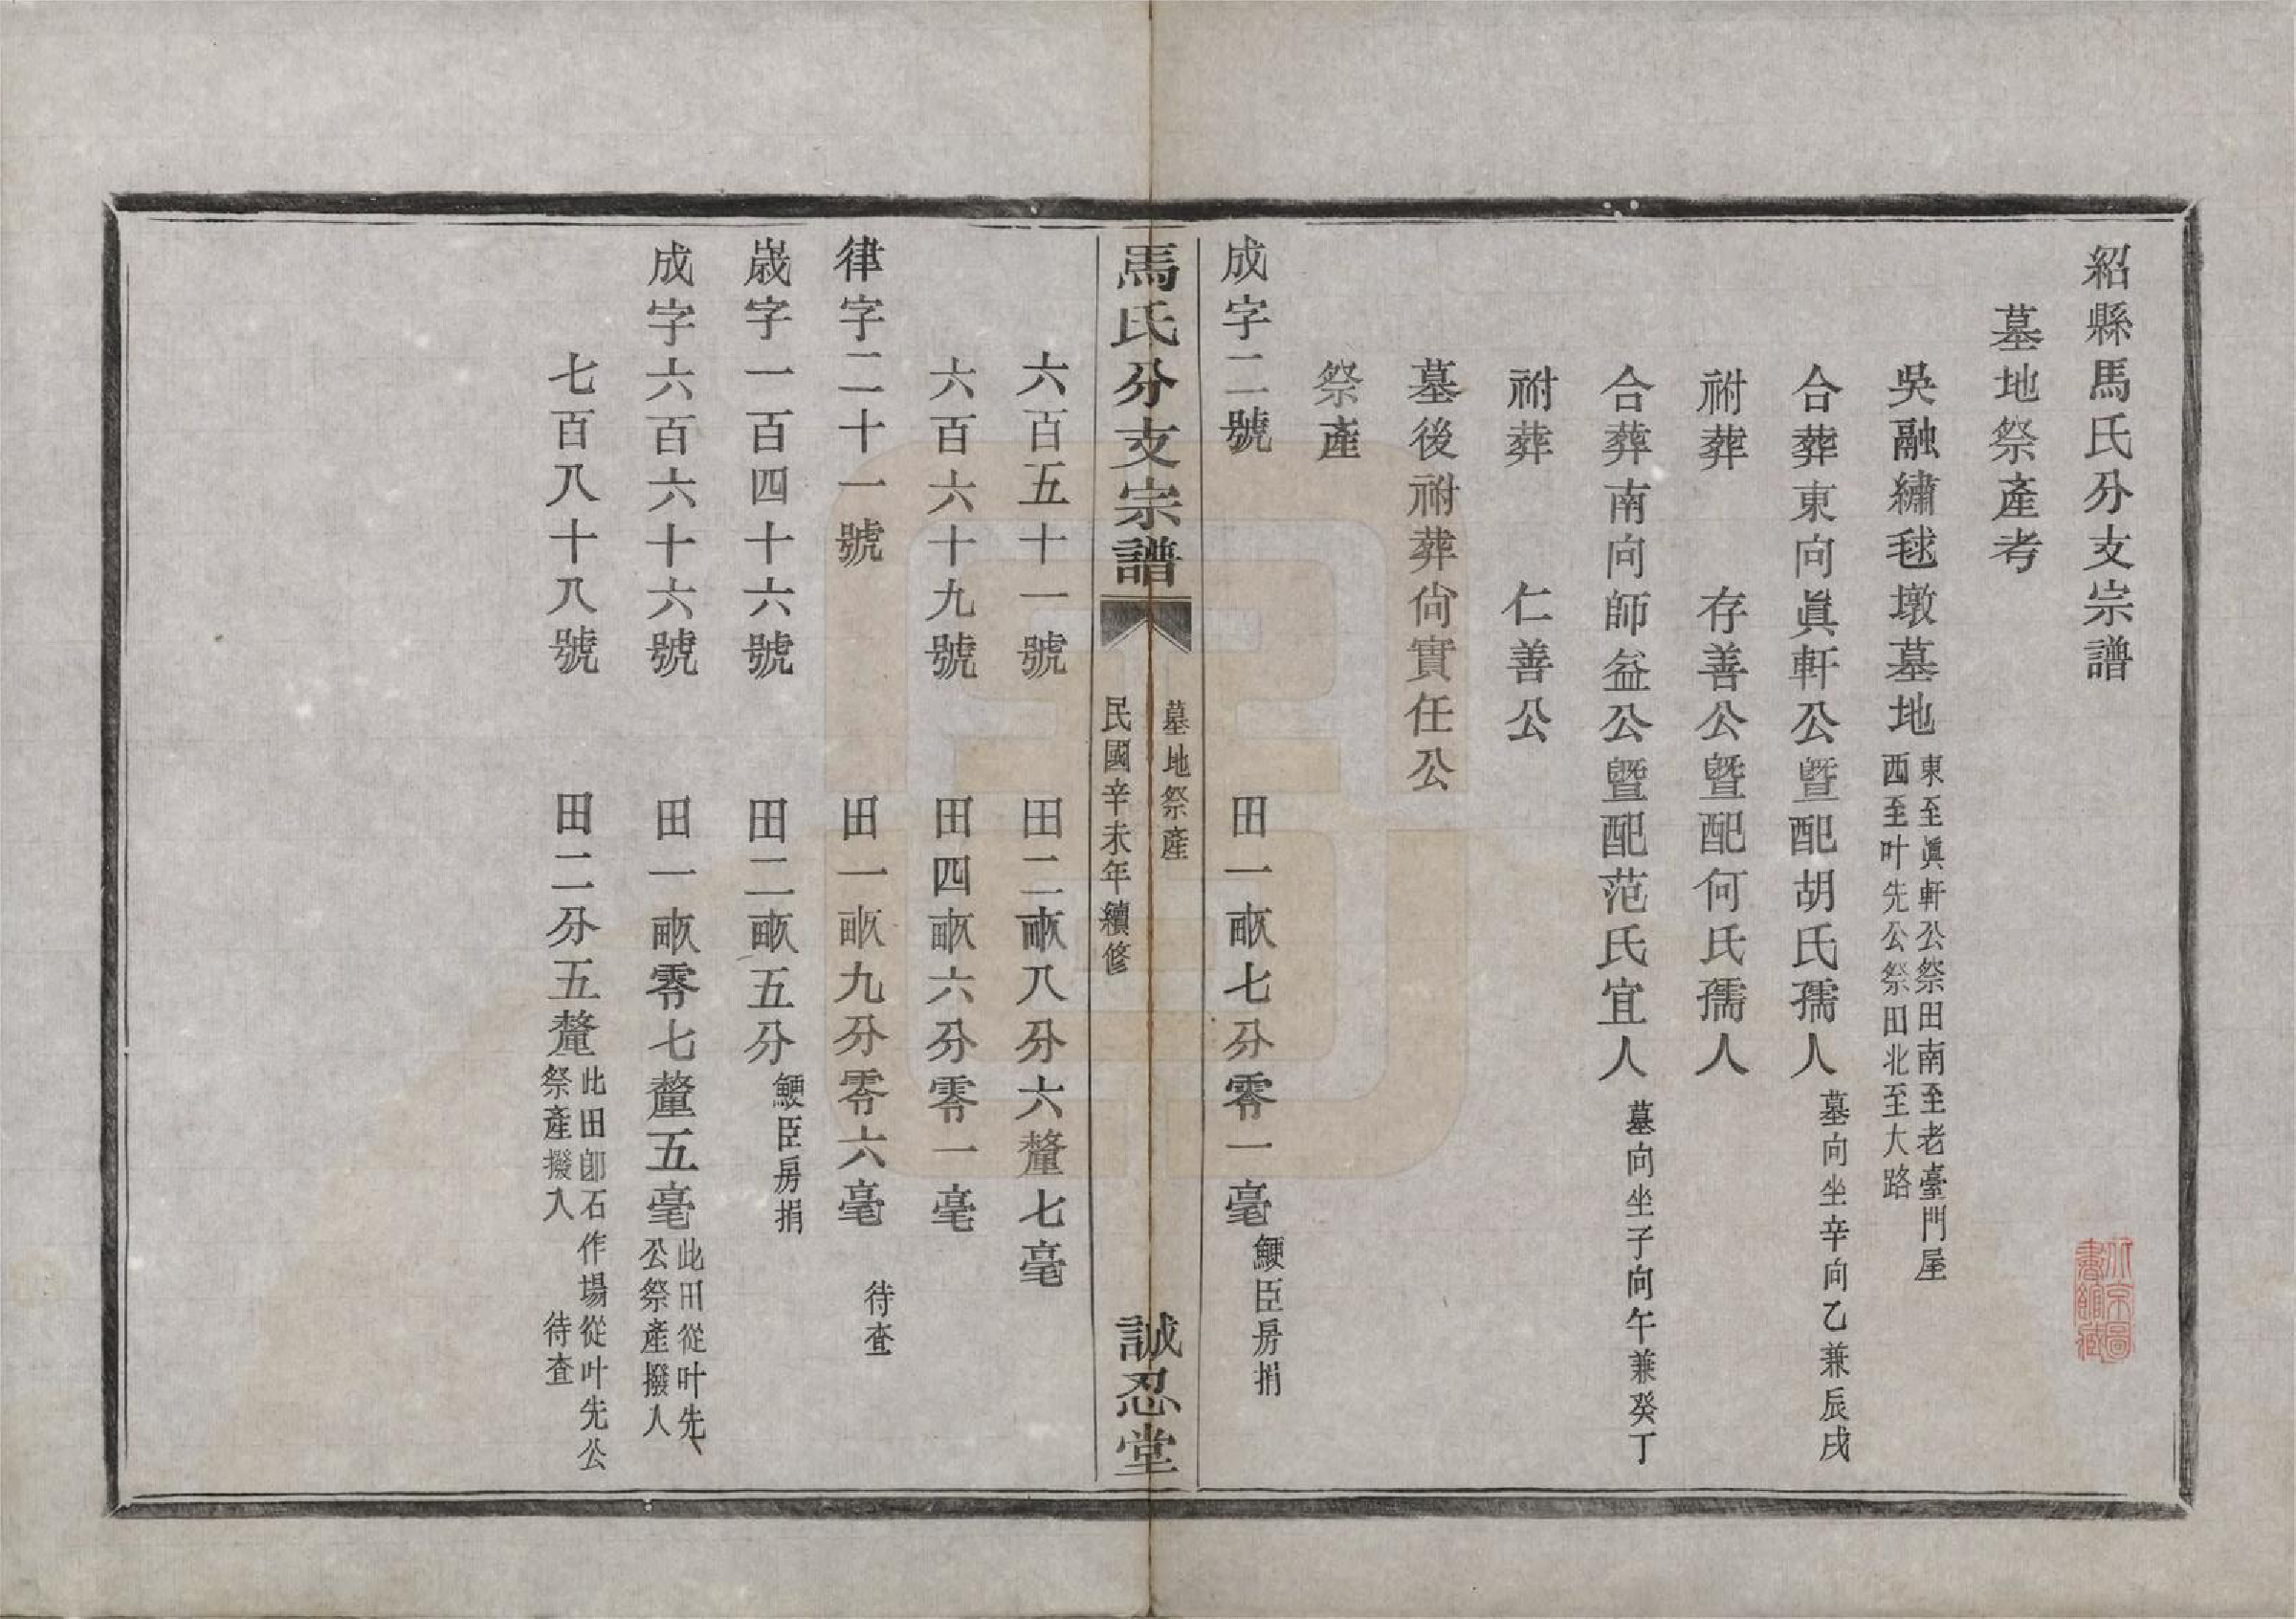 紹縣馬氏分支宗譜
墓地祭產考
吳融繡毬墩墓地 東至眞軒公祭田南至老臺門屋
西至叶先公祭田北至大路
合葬東向眞軒公曁配胡氏孺人 墓向坐辛向乙兼辰戌
祔葬 存善公曁配何氏孺人
合葬南向師益公曁配范氏宜人 墓向坐子向午兼癸丁
祔葬 仁善公
墓後祔葬尙實任公
祭產
成字二號 田一畝七分零一毫 鯁臣房捐
馬氏分支宗譜 墓地祭產
民國辛未年續修 誠忍堂
六百五十一號 田二畝八分六釐七毫
六百六十九號 田四畝六分零一毫
律字二十一號 田一畝九分零六毫 待查
歲字一百四十六號 田二畝五分 鯁臣房捐
成字六百六十六號 田一畝零七釐五毫 此田從叶先
公祭產撥入
七百八十八號 田二分五釐 此田卽石作場從叶先公
祭產撥入 待查
北京圖
書館藏